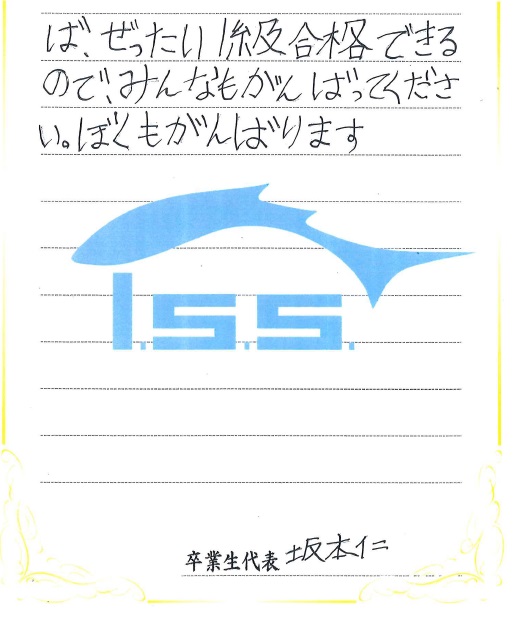 ば、ぜったい1級合格できる
ので、みんなもがんばってくださ
い。ぼくもがんばります
I.S.S.
卒業生代表 坂本仁